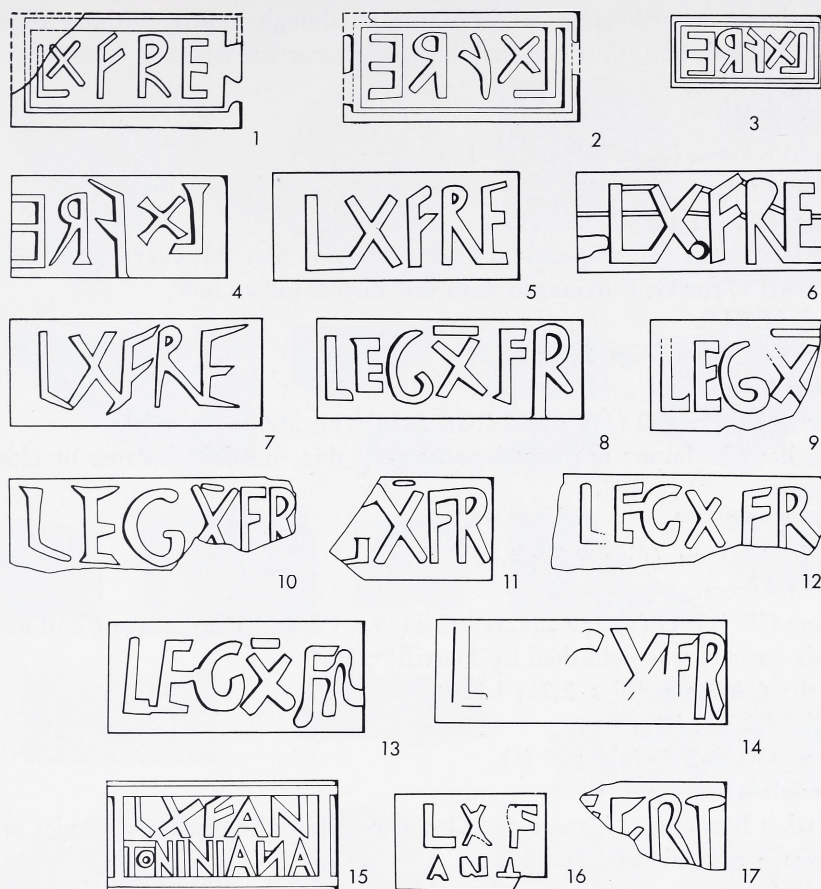 LXFRE
1
LXFRE
2
LXFRE
3
LXFRE
4
LXFRE
5
LXFRE
6
LXFRE
7
LEGX̅FR
8
LEGX̅
9
LEGX̅FR
10
GX̅FR
11
LEGXFR
12
LEGX̅FR
13
L FR
14
LXFAN
TONINIANA
15
LXF
ANT
16
17